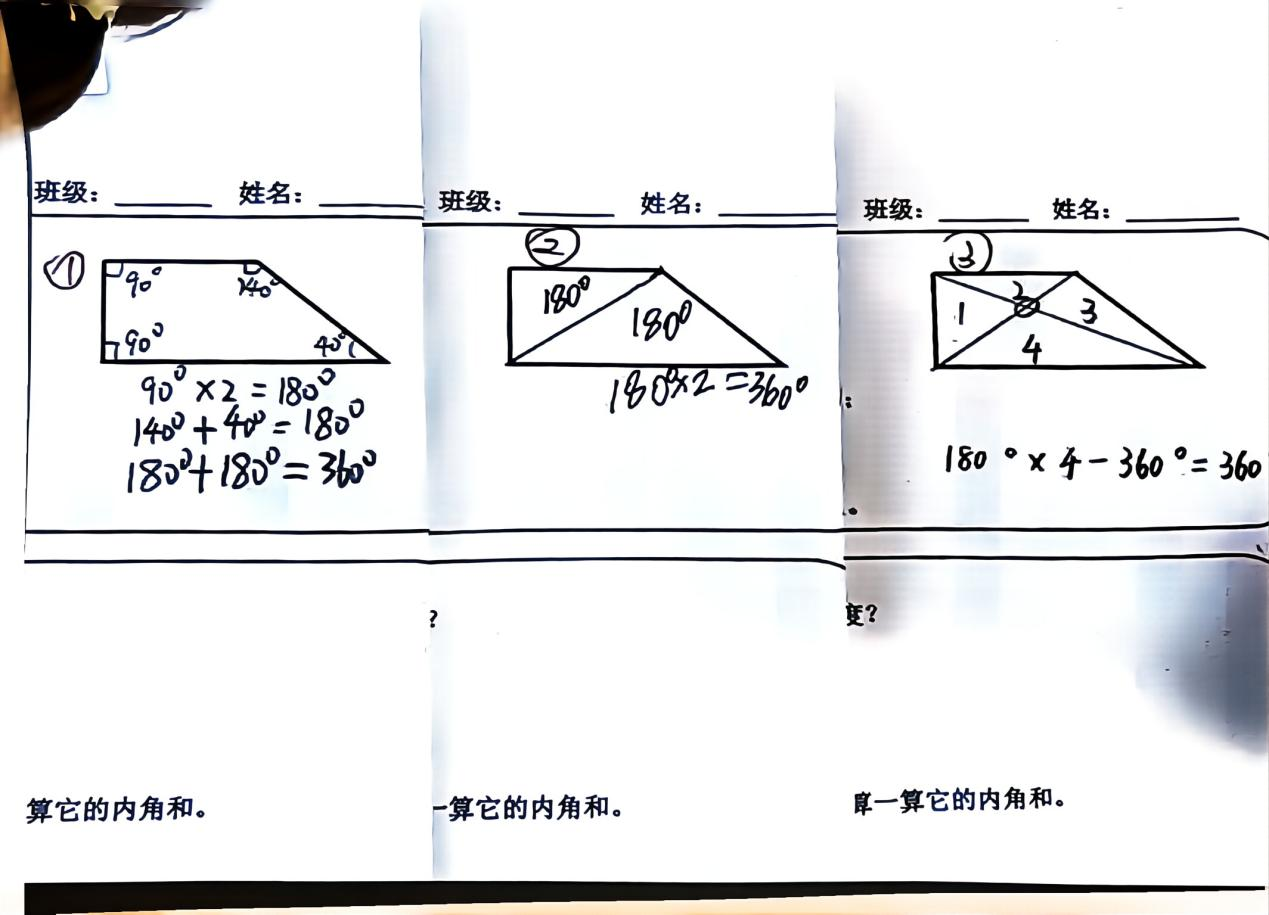 班级： 姓名：
①
90°
140°
90°
40°
90° × 2 = 180°
140° + 40° = 180°
180° + 180° = 360°
算它的内角和。
班级： 姓名：
②
180°
180°
180° × 2 = 360°
?
一算它的内角和。
班级： 姓名：
③
1
2
3
4
180° × 4 - 360° = 360
度?
算一算它的内角和。